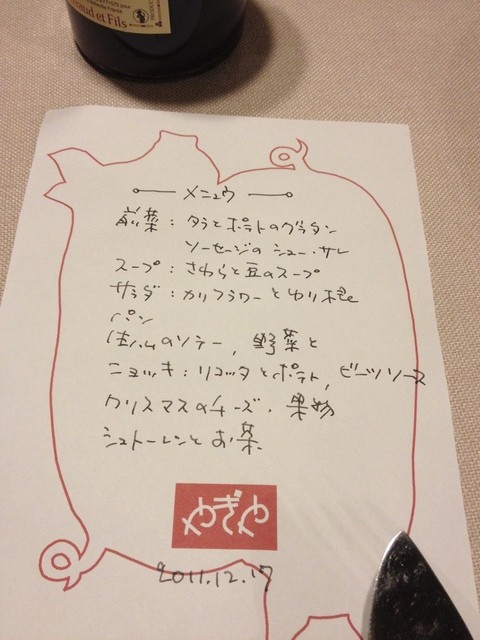 raud et Fils
メニュウ
前菜：タラとポテトのグラタン
ソーセージのシュー・サレ
スープ：さわらと豆のスープ
サラダ：カリフラワーとゆり根
パン
生ハムのソテー，野菜と
ニョッキ：リコッタとポテト，ビーツソース
クリスマスのチーズ・果物
シュトーレンとお茶
やぎや
2011.12.17